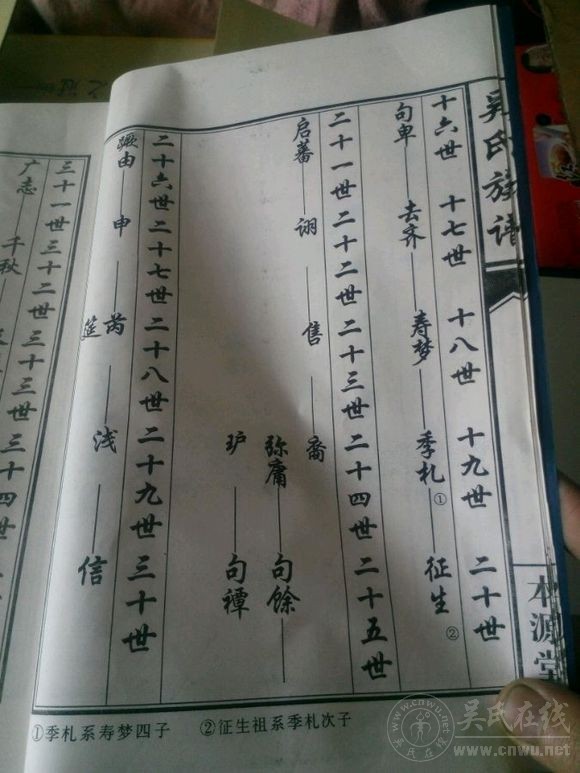 吴氏族谱
本源堂
十六世 十七世 十八世 十九世 二十世
句卑 去齐 寿梦 季札① 征生②
二十一世 二十二世 二十三世 二十四世 二十五世
启蕃 诩 售 裔
弥庸 句馀
玈 句禫
二十六世 二十七世 二十八世 二十九世 三十世
蹶由 申 芮 浅 信
筵
三十一世 三十二世 三十三世 三十四世
广志 千秋
①季札系寿梦四子 ②征生祖系季札次子
吴氏在线
www.cnwu.net